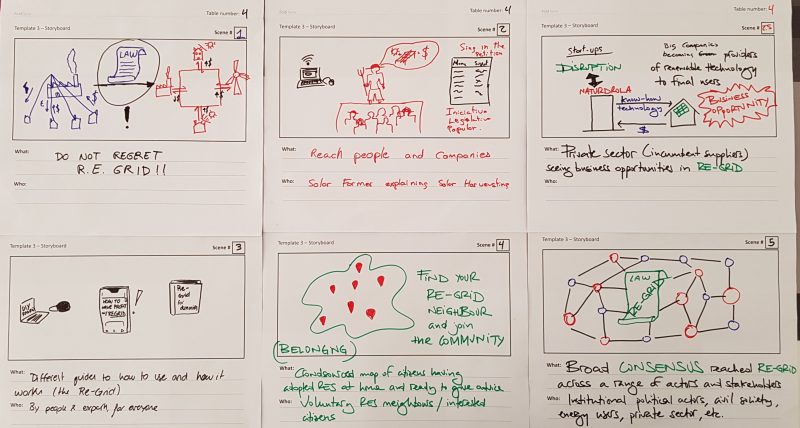 Table number: 4
Template 3 – Storyboard
Scene # 1
LAW
$
!
What:
DO NOT REGRET
R.E. GRID !!
Who:
Table number: 4
Template 3 – Storyboard
Scene # 2
$
Sing in the
petition
Iniciativa
Legislativa
Popular.
What:
Reach people and Companies
Who:
Solar Farmer explaining Solar Harvesting
Table number: 4
Template 3 – Storyboard
Scene # 2.5
Start-ups
DISRUPTION
NATURDROLA
BIG companies
becoming providers
of renewable technology
to final users
know-how
technology
$
BUSINESS
OPPORTUNITY
What:
Private sector (incumbent suppliers)
seeing business opportunities in RE-GRID
Who:
Template 3 – Storyboard
Scene # 3
HOW TO
MAKE PROFIT
RE-GRID
!
Re-
Grid
for
dummies
What:
Different guides to how to use and how it
works (the Re-Grid)
Who:
By people & experts, for everyone
Template 3 – Storyboard
Scene # 4
FIND YOUR
RE-GRID
NEIGHBOUR
and join
the COMMUNITY
BELONGNG
What:
Crowdsourced map of citizens having
adopted RES at home and ready to give advice
Who:
Voluntary RES neighbours / interested
citizens
Template 3 – Storyboard
Scene # 5
LAW
RE-GRID
What:
Broad CONSENSUS reached RE-GRID
across a range of actors and stakeholders
Who:
Institutional political actors, civil society,
energy users, private sector, etc.